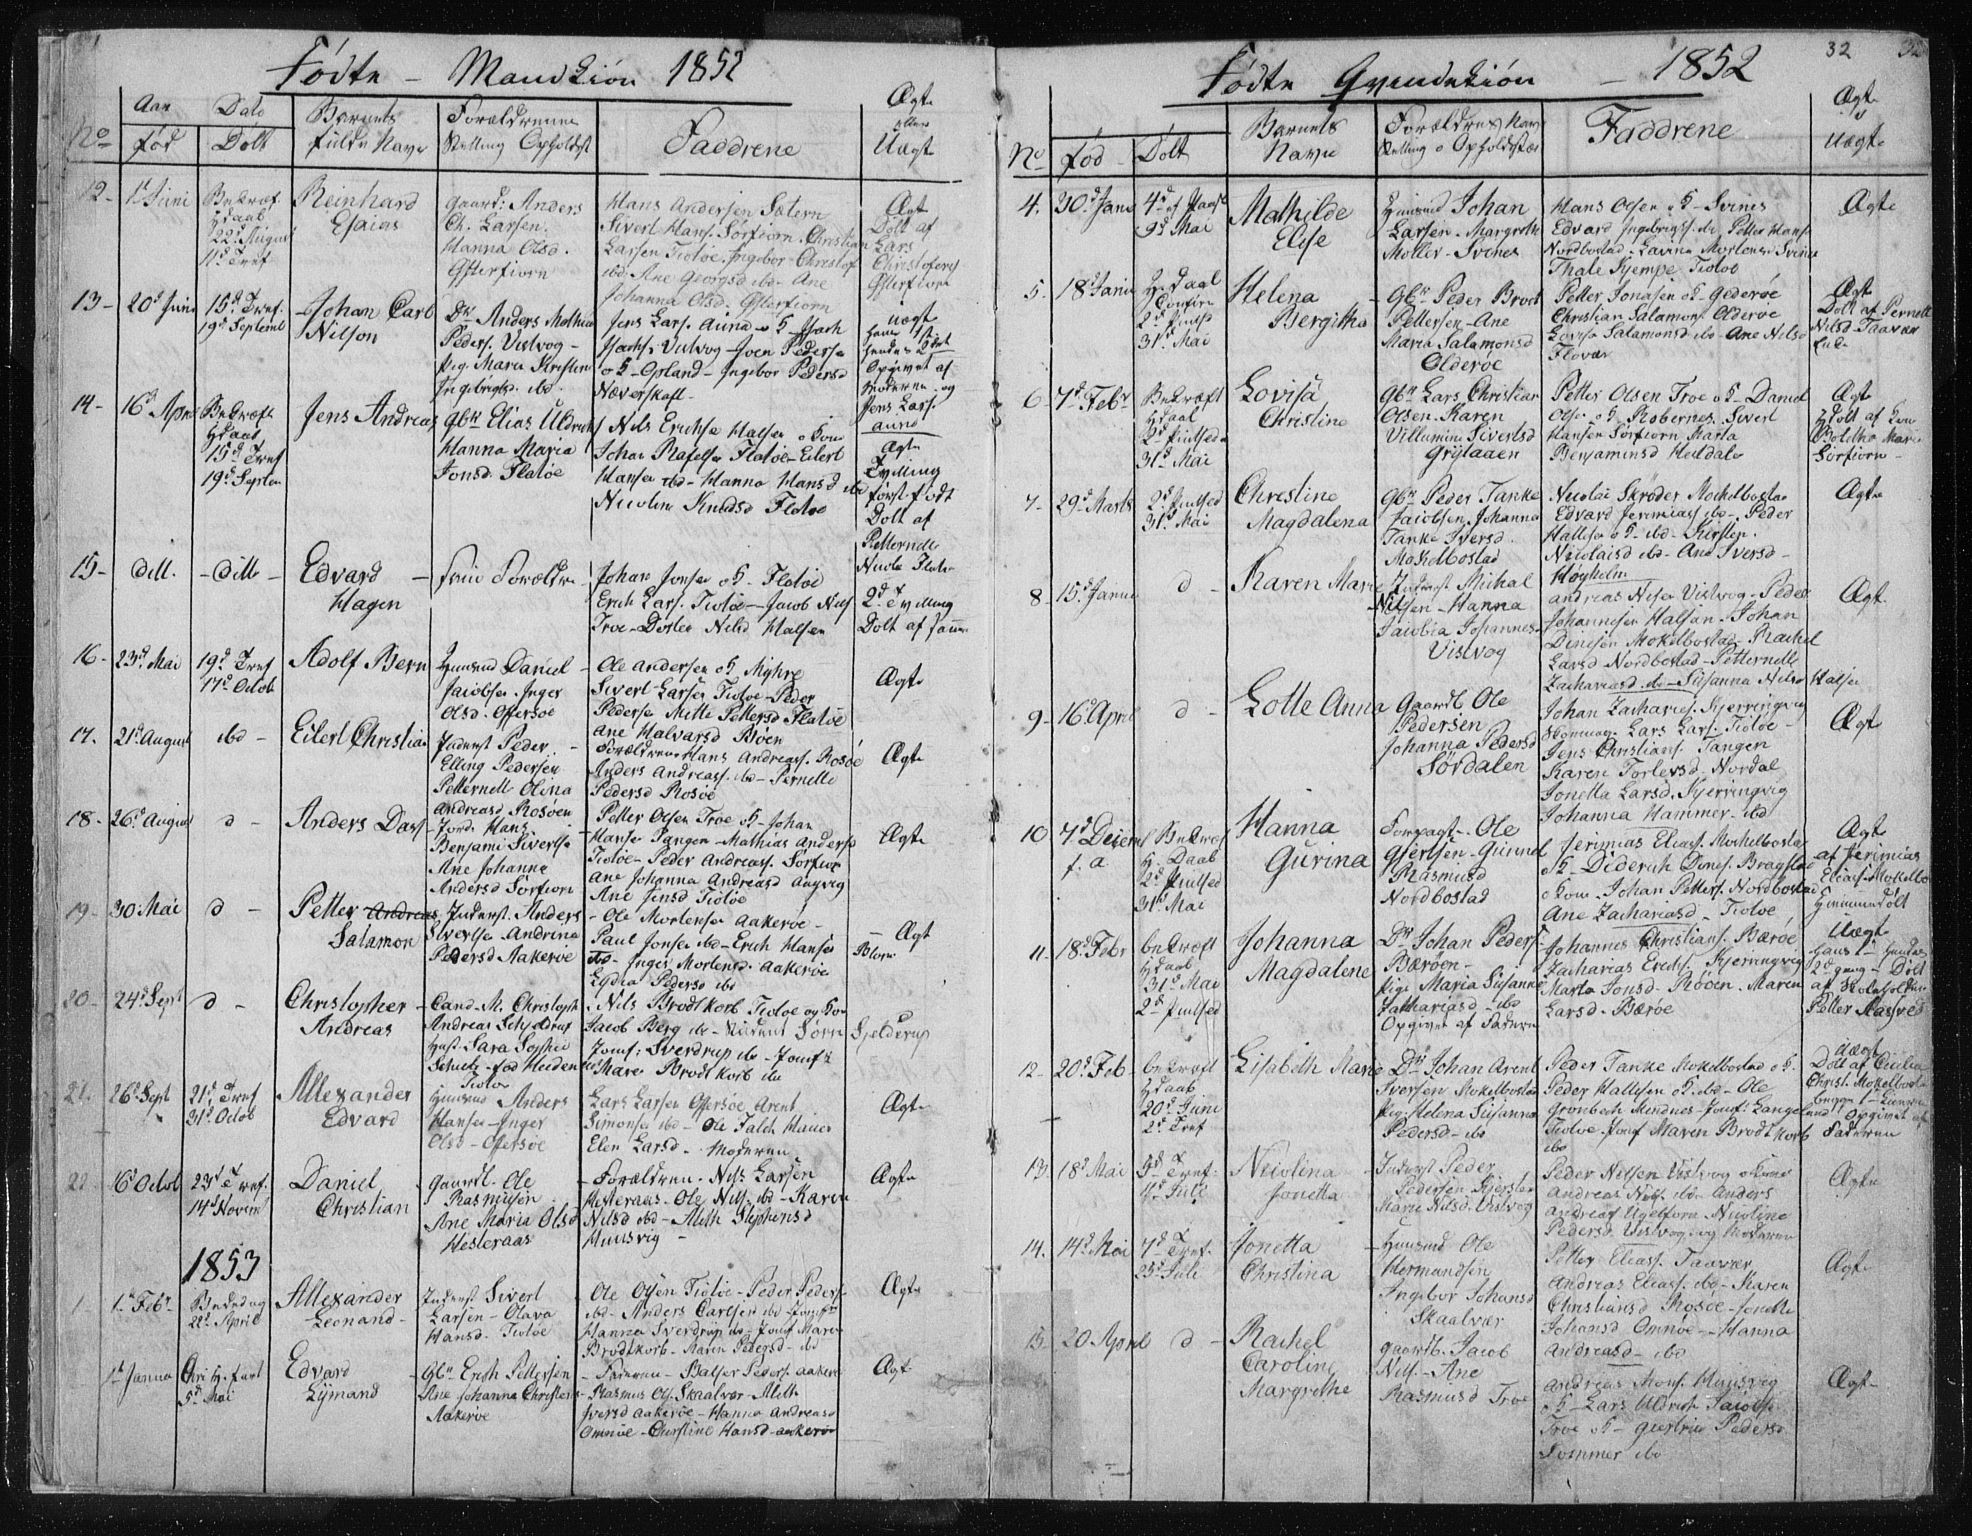 Fødte - Mandkiøn 1852
No
Aar
fød
Dato
Døbt
Barnets
fulde Navn
Forældrenne
Stelling Opholdst
Faddrene
Ægte
eller
Uægt
12 - 1st Juni
Bekræf.
H daab
22d August
11d Tref
Reinhard
Esaias
gaard: Anders
Ch. Larsen.
Hanna Olsd.
Offerfiorn
Hans Andersen Sætern
Sivert Hans. Sørfiorn. Christian
Larsen Tiøtøe. Ingebor Christof
ibd. Ane Georgsd ibd. Ane
Johanna Olsd. Offerfiorn
Ægt
Døbt af
Lars
Christofers
Offerfiorn
13 - 20d Juni
15d Tref.
19d Septemb
Johan Carl
Nilson
Dr Anders Mathias
Peders. Vistvog -
Pig. Maria Kirstine
Ingebrigtsd. ibd.
Næverskaft -
uægt
Opgivet af
Moderen og
Jens Lars.
14 - 16d April
Bekræft
H daab
15d Tref
19d Septem
Jens Andreas
Gbr Elias Uldrichs
Hanna Maria
Jonsd. Flatøe
Nils Erichse Halsen o Kone
Johan Rafelse Flatøe - Eilert
Hansen ibd - Hanna Hansd ibd
Nicoline Knudsd Flatøe
Ægte
Tvilling
først født
Døbt af
Petternelle
15 - ditt.
- ditt -
Edvard
Hagen
Johan Jonsen o K - Flatøe
Erich Lars. Tiøtøe - Jacob Nils
Troe - Dortea Nilsd Halsen
2d Tvilling
Døbt af samme
16 - 23d Mai
19d Tref
17d Octob
Adolf Bern
Huusmd Daniel -
Jacobsen Inger
Olsd. Offersøe
Ole Andersen o K Myhre
Sivert Larsen Tiøtøe - Peder
Pedersen Mette Pettersd Flatøe
Ane Halvarsd Røen
Ægte
17. 21d August
ibd -
Eilert Christian
Inderst Peder -
Elling Pedersen
Petternell Olina
Andreasd Rosøen
Forældrene Hans Andreass. Rosøe
Anders Andreass. ibd - Pernelle
Pedersd Rosøe
Ægte
18 - 26d August
d -
Anders Dass
Hans
Benjami Sivertse
Ane Johanna
Andersd Sørfiorn
Petter Olsen Troe o K - Johan
Hanse Tangen - Mathias Anderse
Tiøtøe - Peder Andreass. Sørfior
Ane Johanna Andreasd Angvig
Ane Jensd Tiøtøe
Ægte
19 - 30 Mai
d -
Petter Andreas
Salamon
Inderst. Anders
Sivertse - Andrina
Pedersd Aakerøe
- Ole Mortensen Aakerøe -
Paul Jonsen ibd - Erich Hansen
ibd - Inger Mortensd. Aakerøe
Lydia Pedersd ibd
Ægt
20 - 24d Sept
d -
Christopher -
Andreas
Cand. M. Christoph
Andreas Schjelderup
Hust. Sara Sophia
Schultz - fød Heiden
Tiøtøe
Nils Brodtkorb Tiøtøe og Kone
Jacob Berg ibd -
Jomf: Sverdrup ibd - Jomf:
Maren Brodtkorb ibd
Sjelderup
21. 26d Sept
21d Tref
31d Octob
Allexander
Edvard
Huusmd Anders
Hansen - Inger
Olsd - Offersøe
Lars Larsen Offersøe Arent
Simonsen ibd - Ole Falch Havn
Elen Larsd - Moderen
Ægte
22. 6d Octob
23d Tref.
14d Novem
Daniel
Christian
gaardb. Ole
Rasmusen
Ane Maria Olsd
Westeraas
- Forældren. Nils Larsen
Westeraas. Ole Nils. ibd - Karen
Nilsd ibd - Meth Stephensd
Huusvig -
Ægte
1853
1. 1d Febr
Bededag
22d April
Allexander
Leonard -
Inderst Sivert
Larsen - Olava
Hansd. Tiøtøe
Ole Olsen Tiøtøe - Peder Peders
ibd - Anders Carlsen ibd - Jomfr
Hanna Sverdrup ibd - Jomf Maren
Brodtkorb - Maren Pedersd - ibd
Ægte
1d Janua
Chri H. fart
5d Mai
Edvard
Lijmand
Gbr Erich Pettersen
Ane Johanna Christens
Aakerøe
- Faderen - Balser Peders. Aakerø
Rasmus Ols. Skaalvær - Meth
Iversd Aakerøe - Hanna Andreasd
Omnøe - Christine Hansd - Aakerøe
Ægt
Fødte Qvindekiøn - 1852
32
No
fød -
Døbt
Barnets
Navn
Forældres Nav
Stelling o Opholdstæ
Faddrene
Ægte
Uægte
4. 30d Janu
4d af Paaske
9d Mai
Mathilde
Elise
Huusmd Johan
Larsen - Margrethe
Møller - Svines
Hans Olsen o K - Svines
Edvard Ingebrigts. ibd - Petter Hans
Nordbostad - Lavina Mortensd Svines
Thale Tiøtøe
Ægte
5. 18d Janu
H. daab
Confir
2d Pindsd
31d Mai
Helena
Bergitha
Gbr Peder Brodt
Pettersen - Ane
Maria Salamonsd
Olderøe
Petter Jonasen o K - Gederøe
Christian Salamons. Olderøe
Lovisa Salamonsd ibd - Ane Nilsd
Flovær
Ægt
Døbt af Pernelle
Nilsd - Taavær
6 - 7d Febr
Bekræft
H daab
2d Pindsed
31d Mai
Lovisa
Christine
Gbr Lars Christian
Olsen. Karen
Villumine Sivertsd
Grytaaen
Petter Olsen Troe o K - Daniel
Olse o K - Robernes. Sivert
Hansen Sørfiorn Marta
Benjaminsd Heildalo
Ægt
Døbt af
Botelha Mari
Sørfiorn -
7 - 29d Marts
2d Pindsed
31d Mai
Christine
Magdalena
Gbr Peder Tanke
Jacobsen. Johanna
Tanke Iversd.
Mokelbostad
Nicolai Skrøder Mokelbostad
Edvard Jerimias ibd -. Peder
Hallesen o K - ibd - Kirsten
Nicolaisd ibd - Ane Iversd -
Høyholm
Ægte
8 - 15d Janua
d -
Karen Marie
Inderst Michal
Nilsen - Hanna
Jacobia Johannesd
Vistvog
Andreas Nilsen Vistvog - Peder
Johannesen Halsen - Johan
Dinesen Mokelbostad - Rachel
Larsd Nordbostad - Petternelle
Zachariasd - ibd - Susanna Nilsd Halsen
Ægt.
9 - 16d April
d -
Lotte Anna
Gaardb Ole
Pedersen
Johanna Pedersd
Sørdalen
Johan Zacharies. Kjerringvig
Skommag. Lars Lars. Tiøtøe -
Jens Christians. Tangen
Karen Torlersd - Nordal
Jonetta Larsd. Kjerringvig
Johanna Hammer - ibd
Ægte
10 7d Decem
f. a
Bekræf
H. Daab
2d Pindsed
31d Mai
Hanna
Gurina
Forpagt. Ole
Gjertsen - Gunnel
Rasmusd
Nordbostad
Jerimias Elias. Mokelbostad
o K - Diderich Dines. Bragstad
o Kone - Johan Petters. Nordbostad
Ane Zachariasd - Tiøtøe
Ægt
af Jerimias
Elias. Mokelbo
Hiemmedøbt
11 - 18d Febr
bekræft
H daab
31d Mai
2d Pindsed
Johanna
Magdalene
Dr Johan Peders.
Bærøen -
Pige Maria Susanne
Zakhariasd - ibd
Opgivet af Faderen
Johannes Christians. Bærøe
Zacharias Erichs. Kjerringvig
Marta Jonsd - Røøen. Maren
Larsd. Bærøe
Uægt
2d gang - Døbt
af Skoleholder
Petter Aasved
12 - 20d Feb
bekræft
H daab
20d Juni
2d Tref
Lisabeth Marie
Dr Johan Arent
Iversen Mokelbostad
Pig. Helena Susanna
Pedersd - ibd
Peder Tanke Mokelbostad o K.
Peder Hallesen o K. ibd - Ole
Grønbech Mindnes - Jomf: Langelund
Tiøtøe - Jomf Maren Brodtkorb
ibd
Uægt
Døbt af Cecilia
Christ. Mokelbosta
Opgivet af
Faderen
13 18d Mai
5d Tref.
4d Juli
Nicolina
Jonetta
Inderst Peder
Pedersen Kjersten
Marie Nilsd. Vistvog
Peder Nilsen Vistvog o Kone
Andreas Nils. ibd - Anders
Andreas Nicoline
Pedersd Vistvog og Moderen
Ægte
14. 14d Mai
7d Tref.
25d Juli
Jonetta
Christina
Huusmd Ole
Hermandsen
Ingebor Johansd
Skaalvær
Petter Elias. Taavær
Andreas Elias. ibd - Karen
Christiansd Rosøe - Jonetha
Johansd Omnøe - Hanna
Andreasd - ibd
Ægte
15 20 April
d -
Rachel
Caroline
Margrethe
gaardb. Jacob
Nils. - Ane
Rasmusd Troe
Andreas Mons. Huusvig
o K - Lars Uldrich Jacobs.
Troe o K - Giertrue Pedersd
Sommer ibd
Ægt -